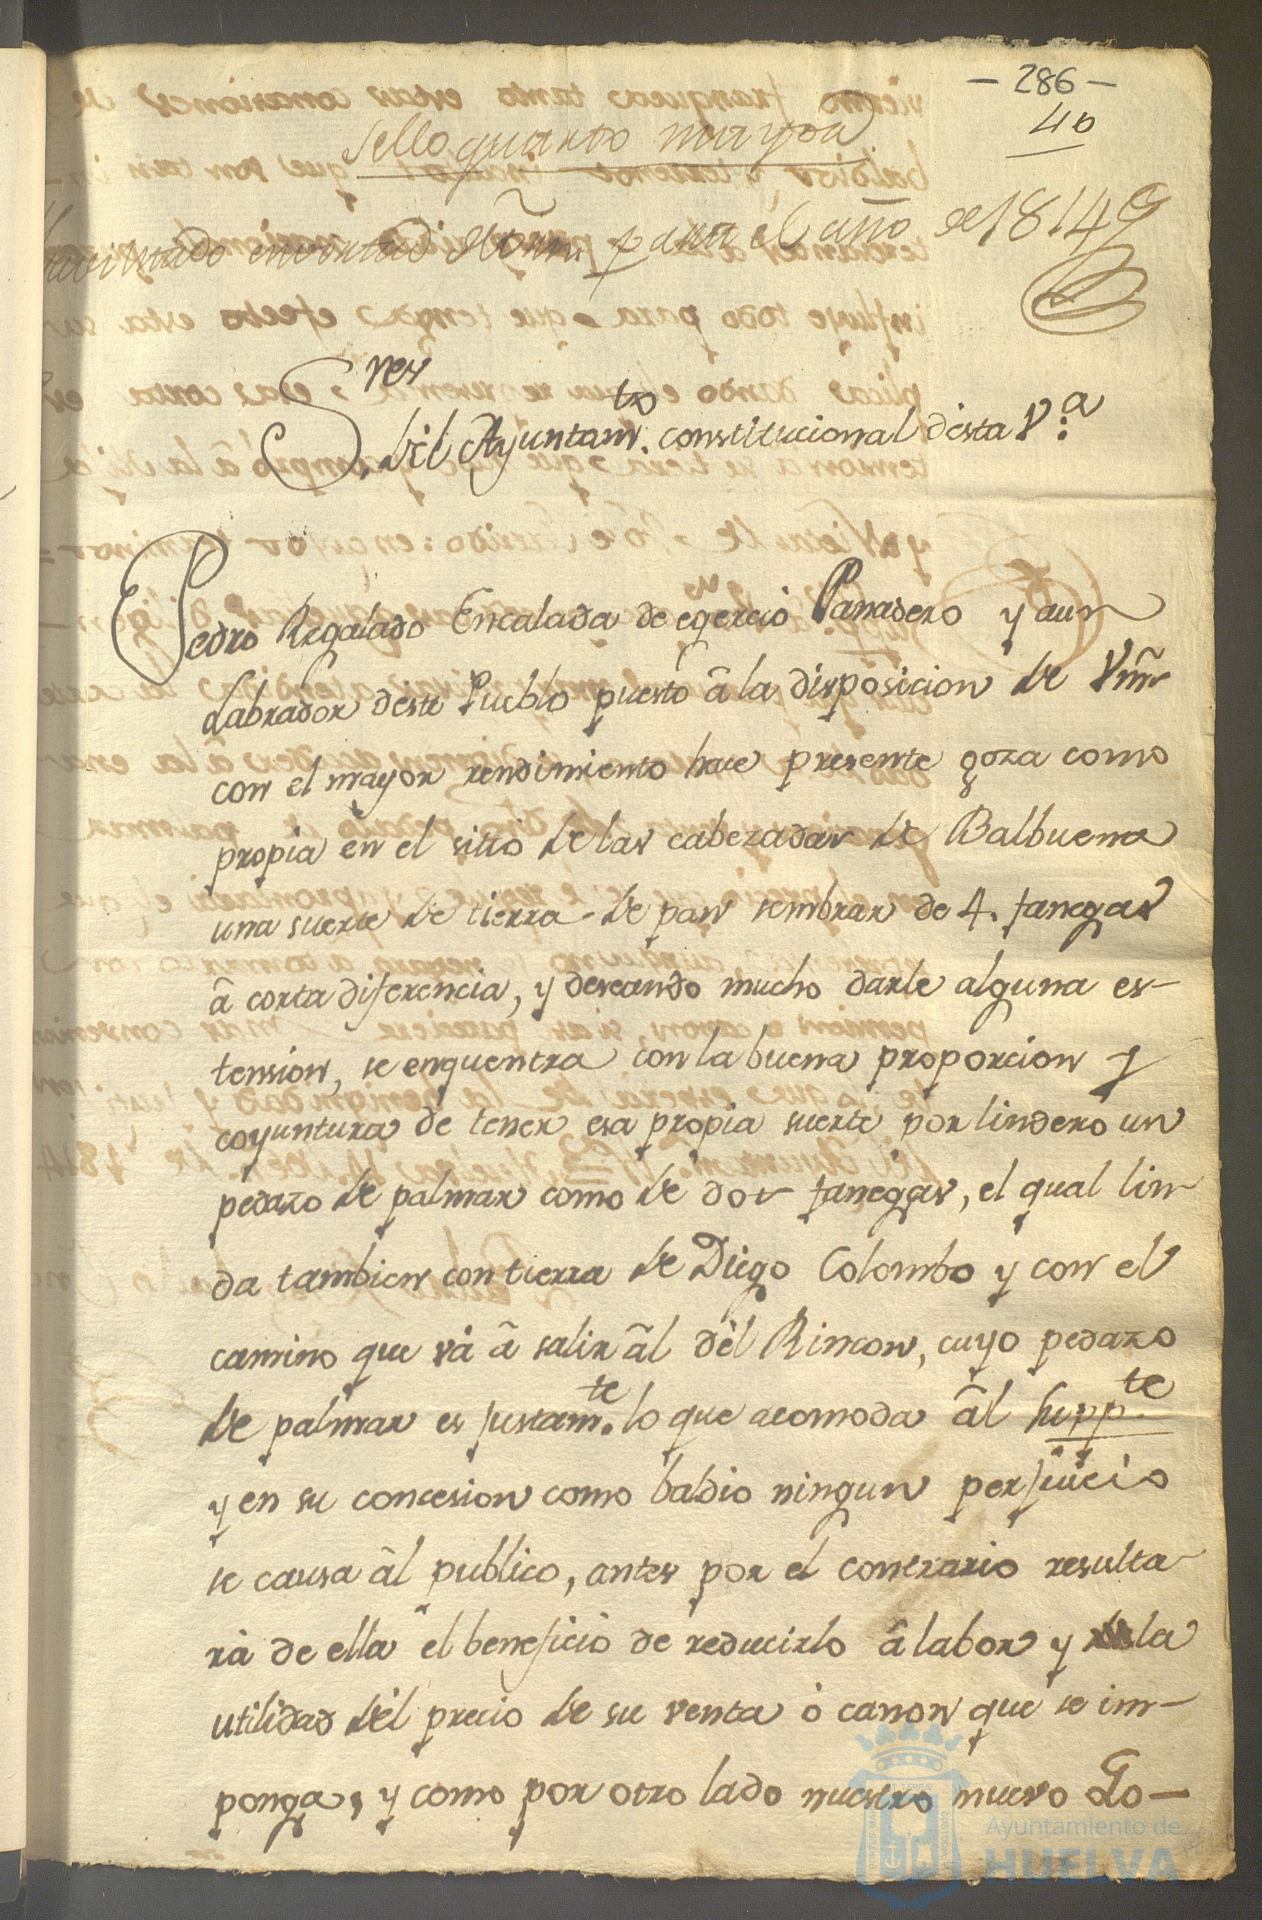 - 286 -
40
Sello quarto mayor
para el año de 1814
Sres
del Ayuntamto. constitucional désta V.a
Pedro Regalado Encalada de egercicio Panadero y aun
Labrador déste Pueblo puesto â la disposicion de Vms
con el mayor rendimiento hace presente goza como
propia en el sitio de las cabezadas de Balbuena
una suerte de tierra de pan sembrar de 4. fanegas
â corta diferencia, y deseando mucho darle alguna es-
tension, se enquentra con la buena proporcion y
coyuntura de tener esa propia suerte por lindero un
pedazo de palmar como de dos fanegas, el qual lin-
da tambien con tierra de Diego Colombo y con el
camino que vá â salir âl dél Rincon, cuyo pedazo
de palmar es justamte. lo que acomoda âl suppte.
y en su concesion como baldio ningun perjuicio
se causa âl publico, antes por el contrario resulta-
rá de ella el beneficio de reducirlo â labor y la
utilidad dél precio de su venta ó canon que se im-
ponga, y como por otro lado nuestro nuevo Go-
Ayuntamiento de
HUELVA